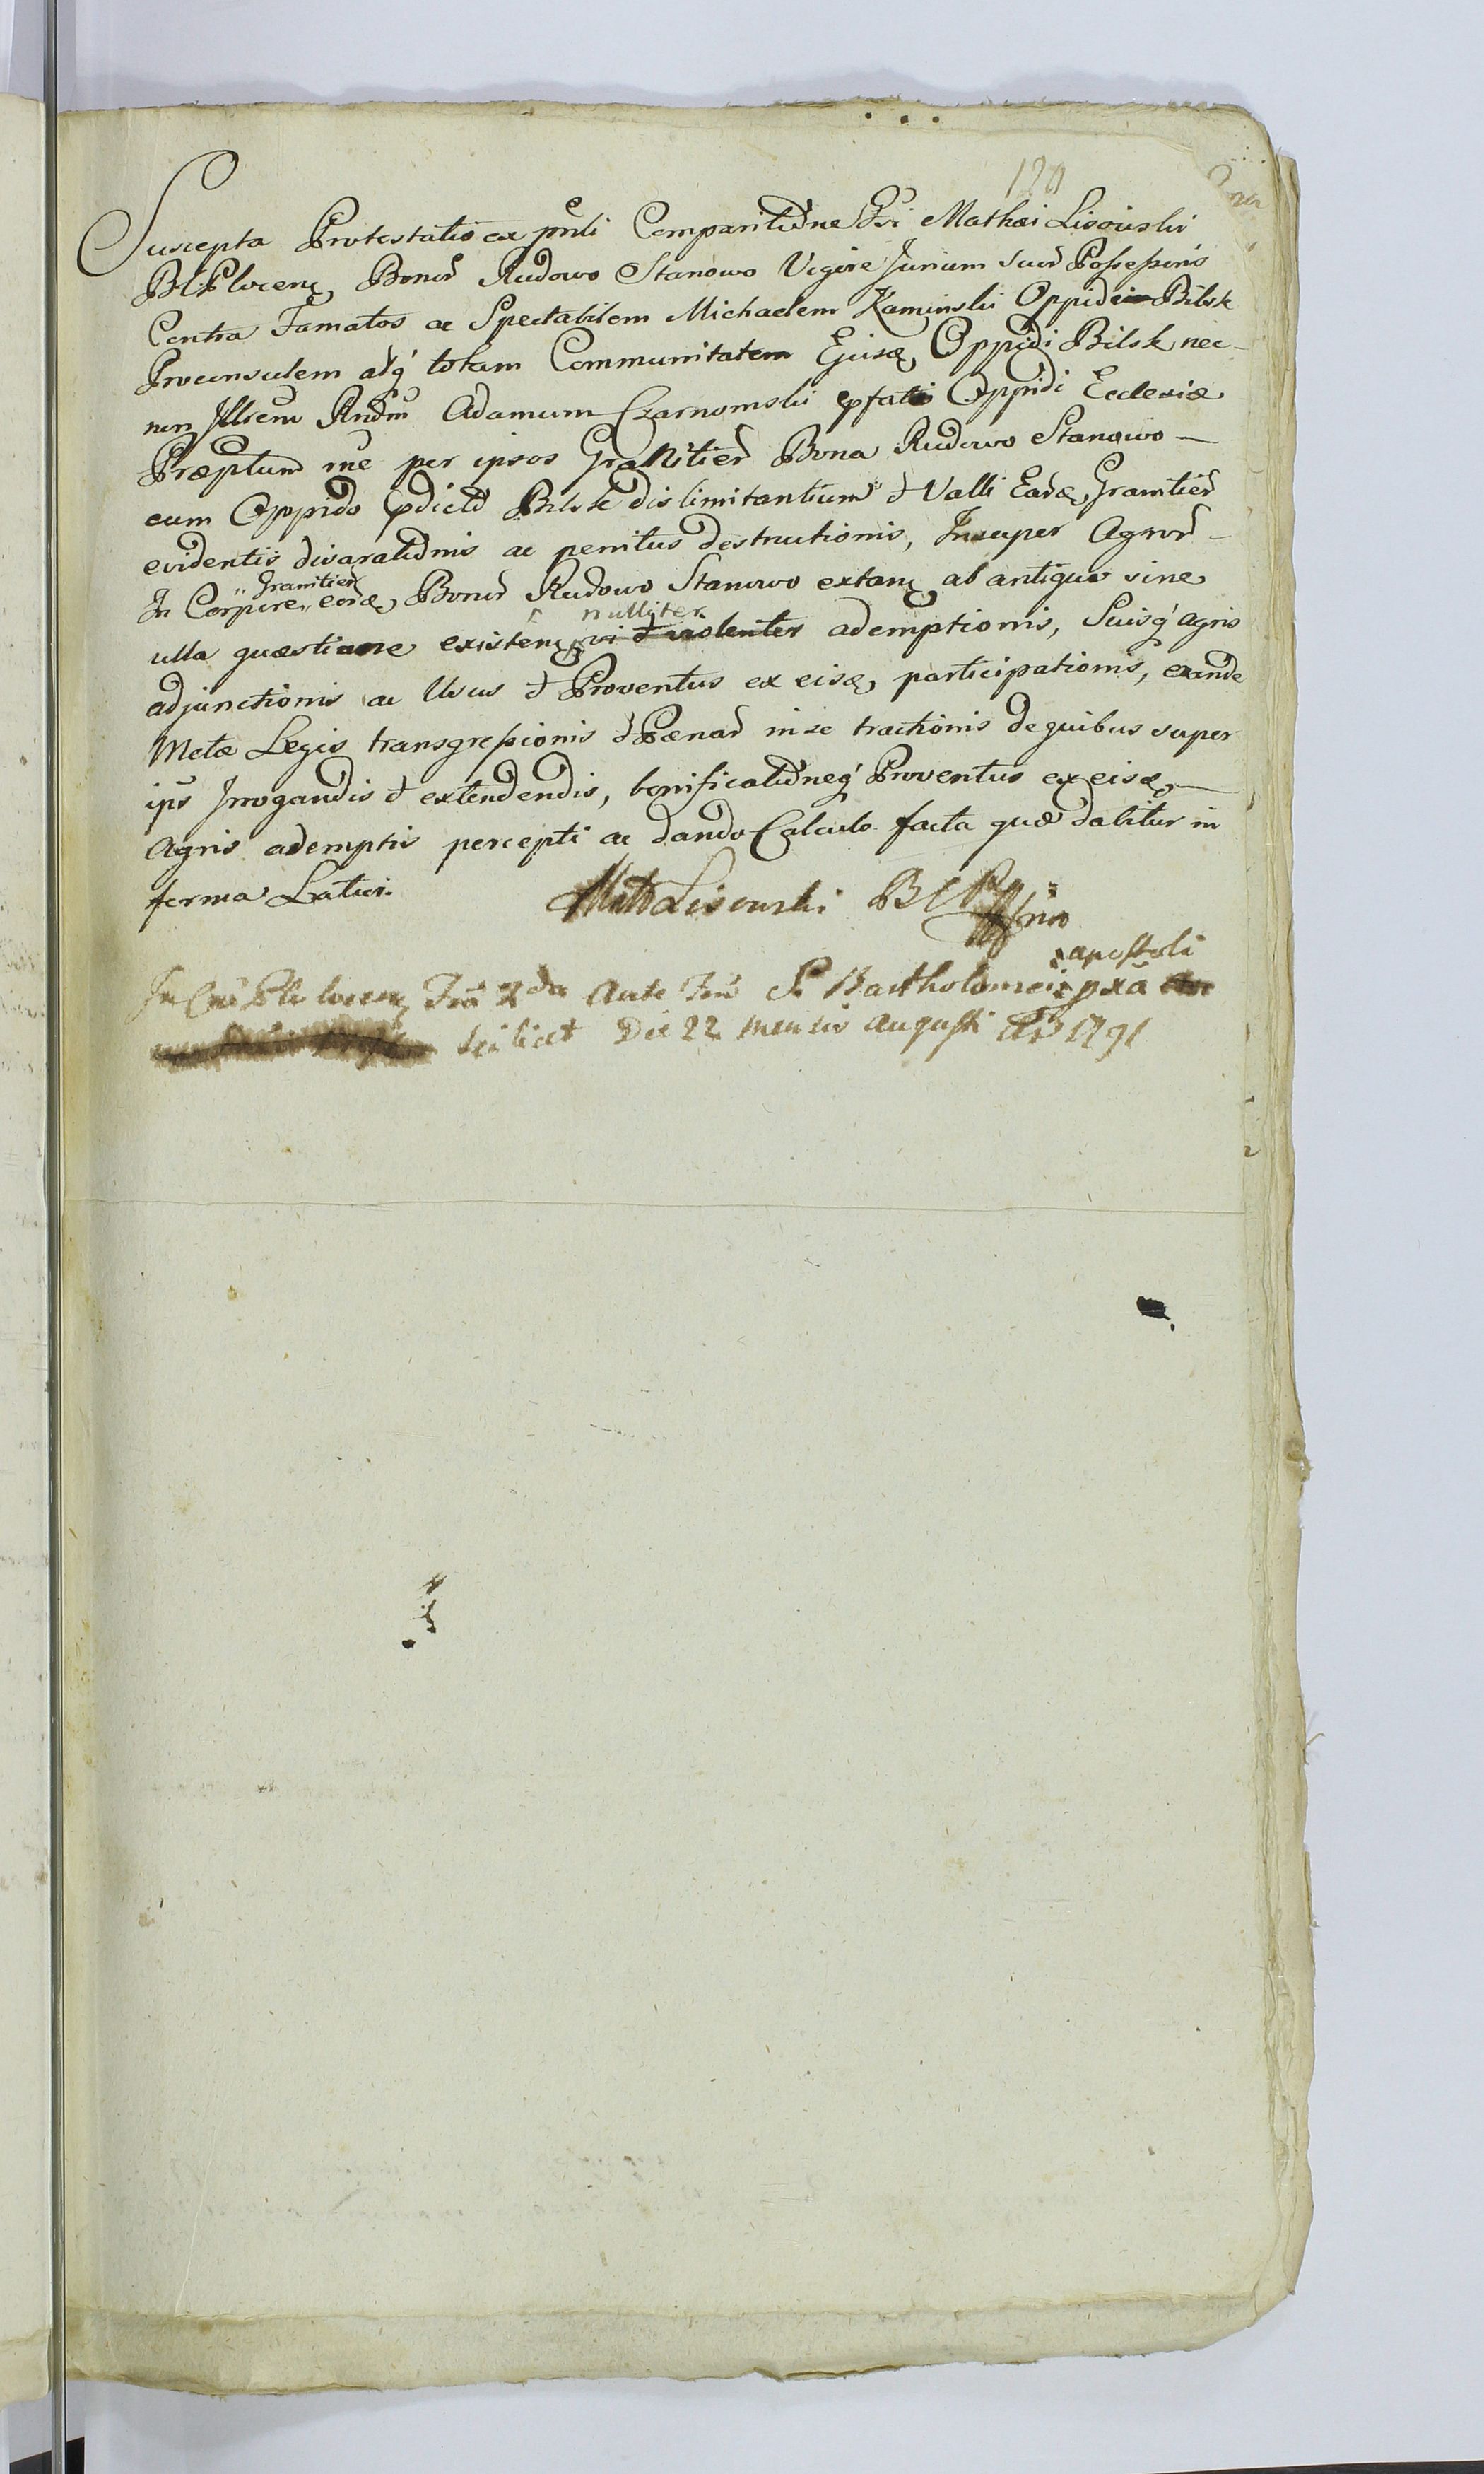 Suscepta Protestatio ex pñli Comparitiõne Gsi Mathæi Lisowski
BCPlocen, Bonor̃ Rudowo Stanowo Vigore Jurium suor̃ Possessoris
Contra Famatos ac Spectabilem Michaelem Kaminski Oppidi Bilsk
Proconsulem atq́ totam Communitatem Ejusd, Oppidi Bilsk nec
non Illrem Rndm̃ Adamum Czarnomski pfati Oppidi Ecclesiæ
Præptum rñe per ipsos Granitier̃ Bona Rudowo Stanowo
cum Oppido pdicto Bilsk dislimitantium & Valli Eard, Granitier̃
evidentis disaratiõnis ac penitus destructionis, Insuper Agror̃
In Corpore eord, Bonor̃ Rudowo Stanowo extan, ab antiquo sine
" Granitier̃
ulla quæstione existen, vi & violenter ademptionis, Suisq́ agris
nulliter
adjunctionis ac Usus & Proventus ex eisd, participationis, exande
Metæ Legis transgressionis & Pænar̃ in se tractionis de quibus super
ips Irrogandis & extendendis, bonificatiõneq́ Proventus ex eisd,
Agris ademptis percepti ac dando Calculo facta quæ dabitur in
forma Latiori.
Mat Lisowski BCP
In Cño Plocen, Fria 2da Ante Fm̃ S. Bartholomei pxa
apostoli
scilicet Die 22 mensis Augusti AD 1791